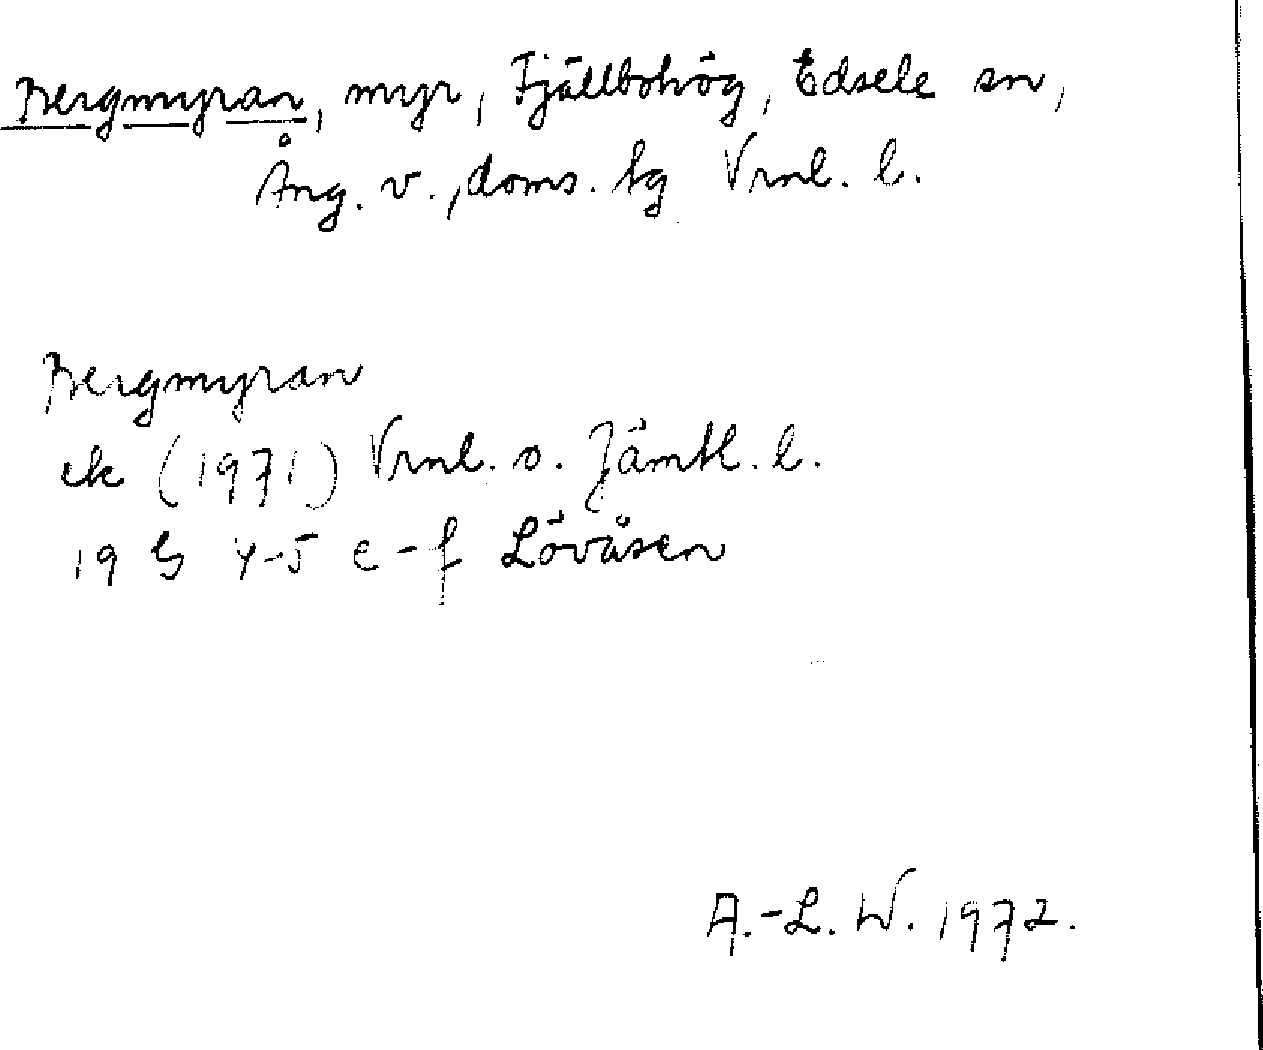 Bergmyran, myr, Fjällbohög, Edsele sn,
Ång. v., doms. tg Vrnl. l.
Bergmyran
ek (1971) Vrnl. o. Jämtl. l.
19 G 4-5 e-f Lövåsen
A.-L. W. 1972.